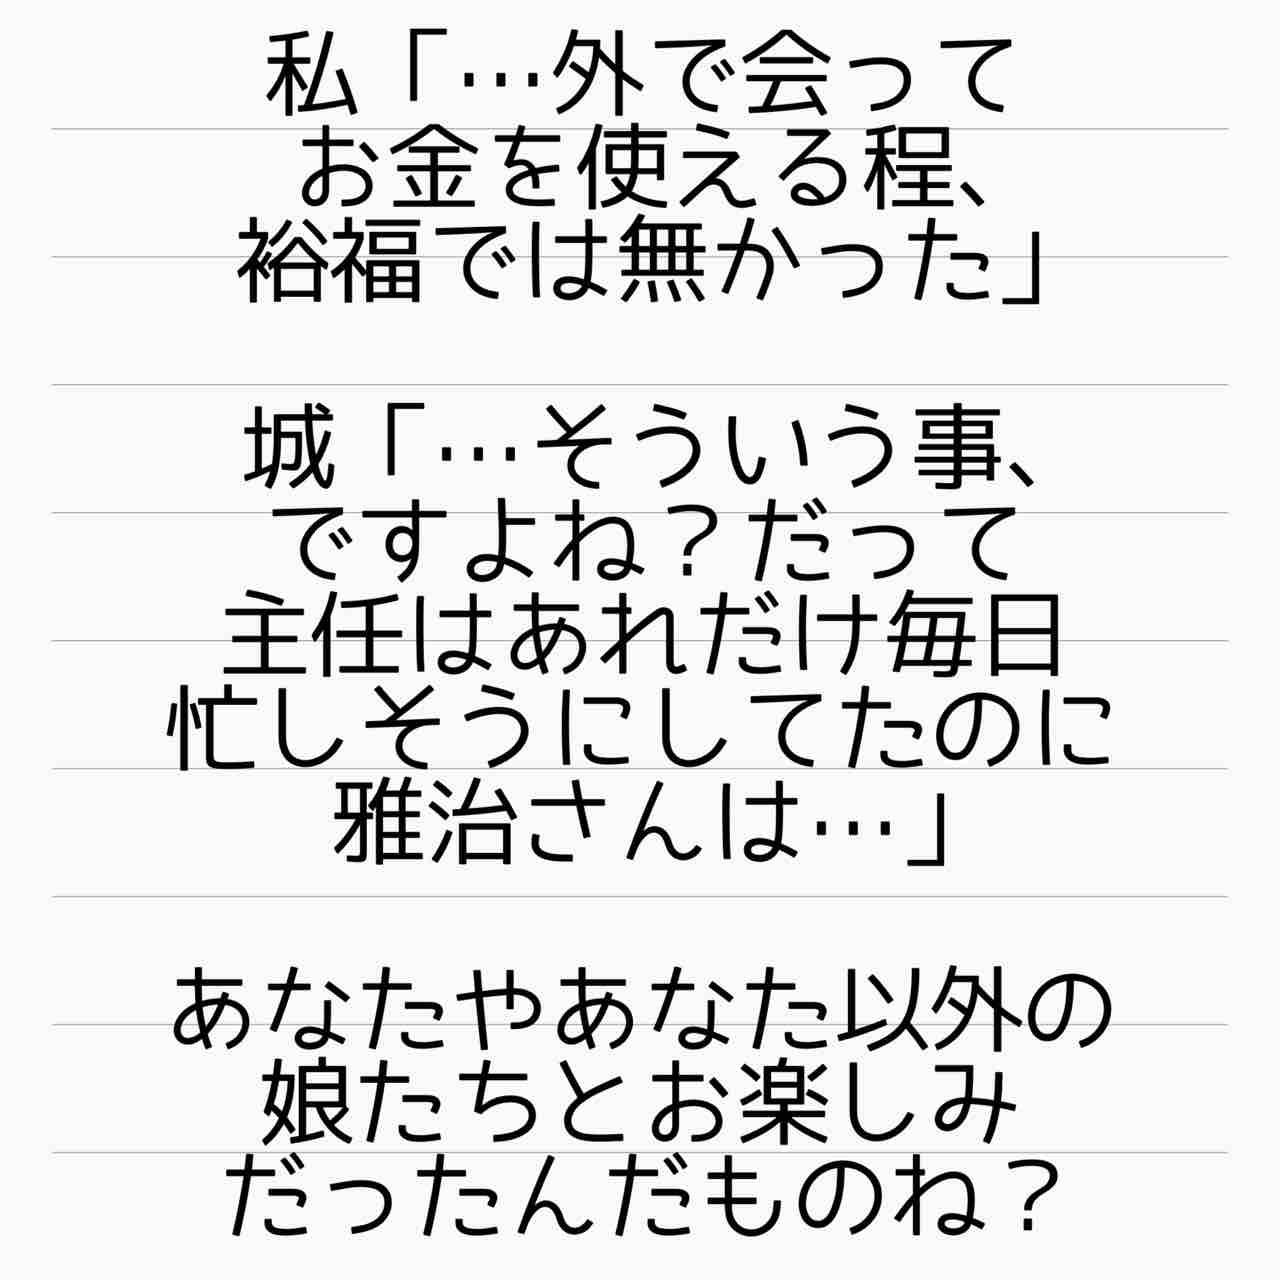 私「…外で会って
お金を使える程、
裕福では無かった」
城「…そういう事、
ですよね？だって
主任はあれだけ毎日
忙しそうにしてたのに
雅治さんは…」
あなたやあなた以外の
娘たちとお楽しみ
だったんだものね？